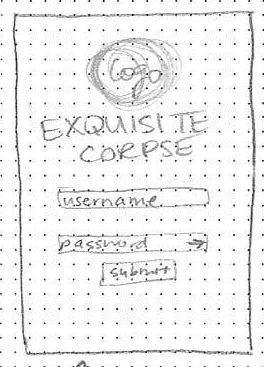 Logo
EXQUISITE
CORPSE
username
password →
submit